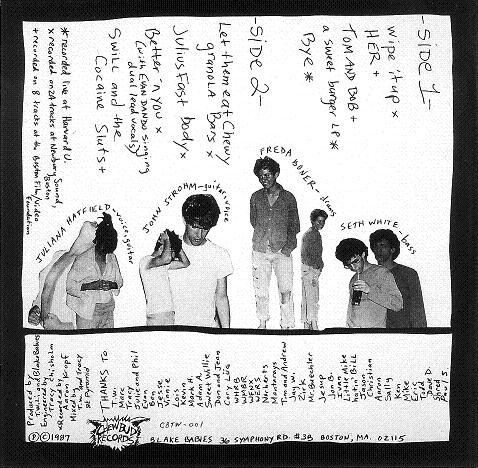 -SIDE 1-
wipe it up x
HER +
TOM AND BOB +
a sweet burger LP *
Bye *
-SIDE 2-
Let them eat Chewy
granola Bars x
Julius Fast body x
Better 'n you x
(with EVAN DANDO singing
dual lead vocals)
Swill and the
Cocaine Sluts +
* recorded live at Harvard U.
x recorded on 24 tracks at Newbury Sound,
Boston
+ recorded on 8 tracks at the Boston Film/Video
Foundation
JULIANA HATFIELD-voice, guitar
JOHN STROHM-guitar, voice
FREDA BONER-drums
SETH WHITE-bass
Produced by
T.W. Li and Blake Babies
Engineered by
Tracy Chisholm
*Recorded by
Aaron Kropf
Mixed by
T.W. and Tracy
at Pyramid
THANKS TO
T.W.
Marc
Tracy
Julie and Phil
Evan
Ben
Jesse
Vinnie
Lori
Ann
Mark H.
Adam A.
Sweet Willie
Don and Jean
Curly Lüg
WHRB
WMBR
WFNX
WERS
McRoberts
Monterays
Tom and Andrew
Jay W.
Zirk
Mr. Baechler
Jessup
Jon B.
Janet
Little Mike
hatin' Bill
John
Christian
Aaron
Sally
Ken
Mike
Eric
Todd
Dave D.
Shred
Paul S.
CHEWBUD
RECORDS
CBTW-001
BLAKE BABIES 36 SYMPHONY RD. #3B BOSTON, MA. 02115
℗©1987